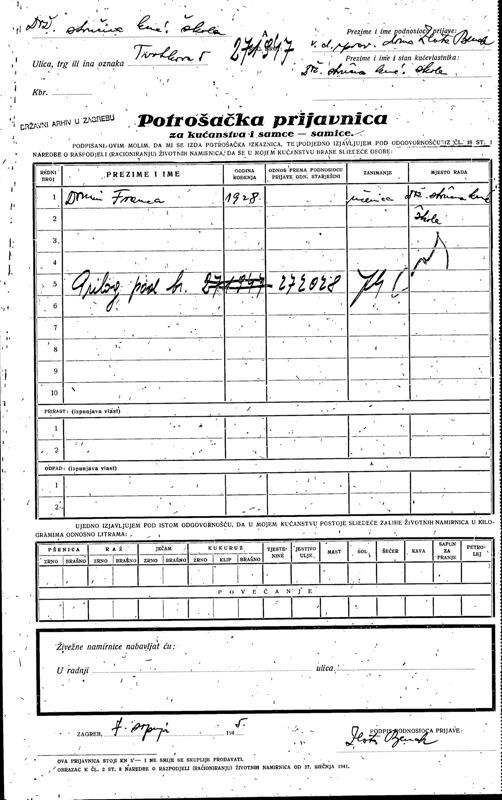 Drž. stručna kuć. škola
Prezime i ime podnosioca prijave:
v. d. uprav. doma Zlata Benak
Ulica, trg ili ina oznaka Tvrtkova 5
Prezime i ime i stan kućevlastnika:
Drž. stručna kuć. škola
Kbr.
DRŽAVNI ARHIV U ZAGREBU
Potrošačka prijavnica
za kućanstva i samce — samice.
PODPISANI OVIM MOLIM, DA MI SE IZDA POTROŠAČKA IZKAZNICA, TE JPODJEDNO IZJAVLJUJEM POD ODGOVORNOŠĆU IZ ČL. 18 ST. 1
NAREDBE O RASPODJELI (RACIONIRANJU) ŽIVOTNIH NAMIRNICA, DA SE U MOJEM KUĆANSTVU HRANE SLIEDEĆE OSOBE:
REDNI BROJ PREZIME I IME GODINA RODJENJA ODNOS PREMA PODNOSIOCU PRIJAVE ODN. STARJEŠINI ZANIMANJE MJESTO RADA
1 Domin Franca 1928. učenica Drž. stručna kuć.
2 škola
3
4
5 Prilog pod br. 272028
6
7
8
9
10
PRIRAST: (izpunjava vlast)
1
2
ODPAD: (izpunjava vlast)
1
2
UJEDNO IZJAVLJUJEM POD ISTOM ODGOVORNOŠĆU, DA U MOJEM KUĆANSTVU POSTOJE SLIEDEĆE ZALIHE ŽIVOTNIH NAMIRNICA U KILO-
GRAMIMA ODNOSNO LITRAMA:
PŠENICA RAŽ JEČAM KUKURUZ TJESTE-NINE JESTIVO ULJE MAST SOL ŠEĆER KAVA SAPUN ZA PRANJE PETRO-LEJ
ZRNO BRAŠNO ZRNO BRAŠNO ZRNO BRAŠNO ZRNO KLIP BRAŠNO
POVEĆANJE
Živežne namirnice nabavljat ću:
U radnji ulica
ZAGREB, 7. srpnja 194 5.
PODPIS PODNOSIOCA PRIJAVE:
Zlata Benak
OVA PRIJAVNICA STOJI KN 5·— I NE SMIJE SE SKUPLJE PRODAVATI.
OBRAZAC K ČL. 2 ST. 8 NAREDBE O RAZPODJELI (RACIONIRANJU) ŽIVOTNIH NAMIRNICA OD 27. SIEČNJA 1941.